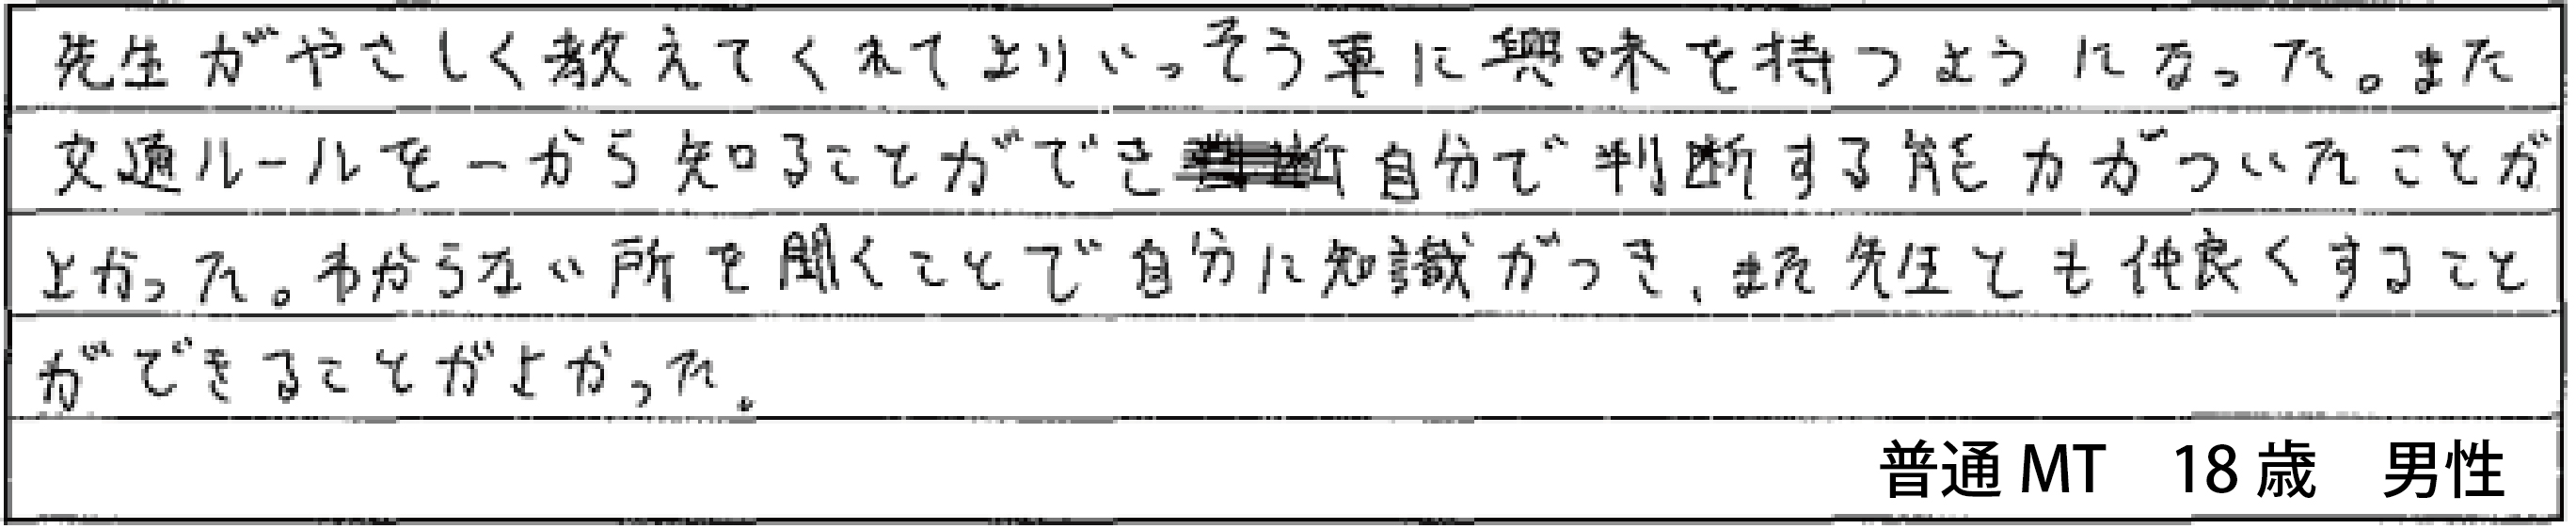 先生がやさしく教えてくれてよりいっそう車に興味を持つようになった。また
交通ルールを一から知ることができ自分で判断する能力がついたことが
よかった。わからない所を聞くことで自分に知識がつき、また先生とも仲良くすること
ができることがよかった。
普通MT 18歳 男性